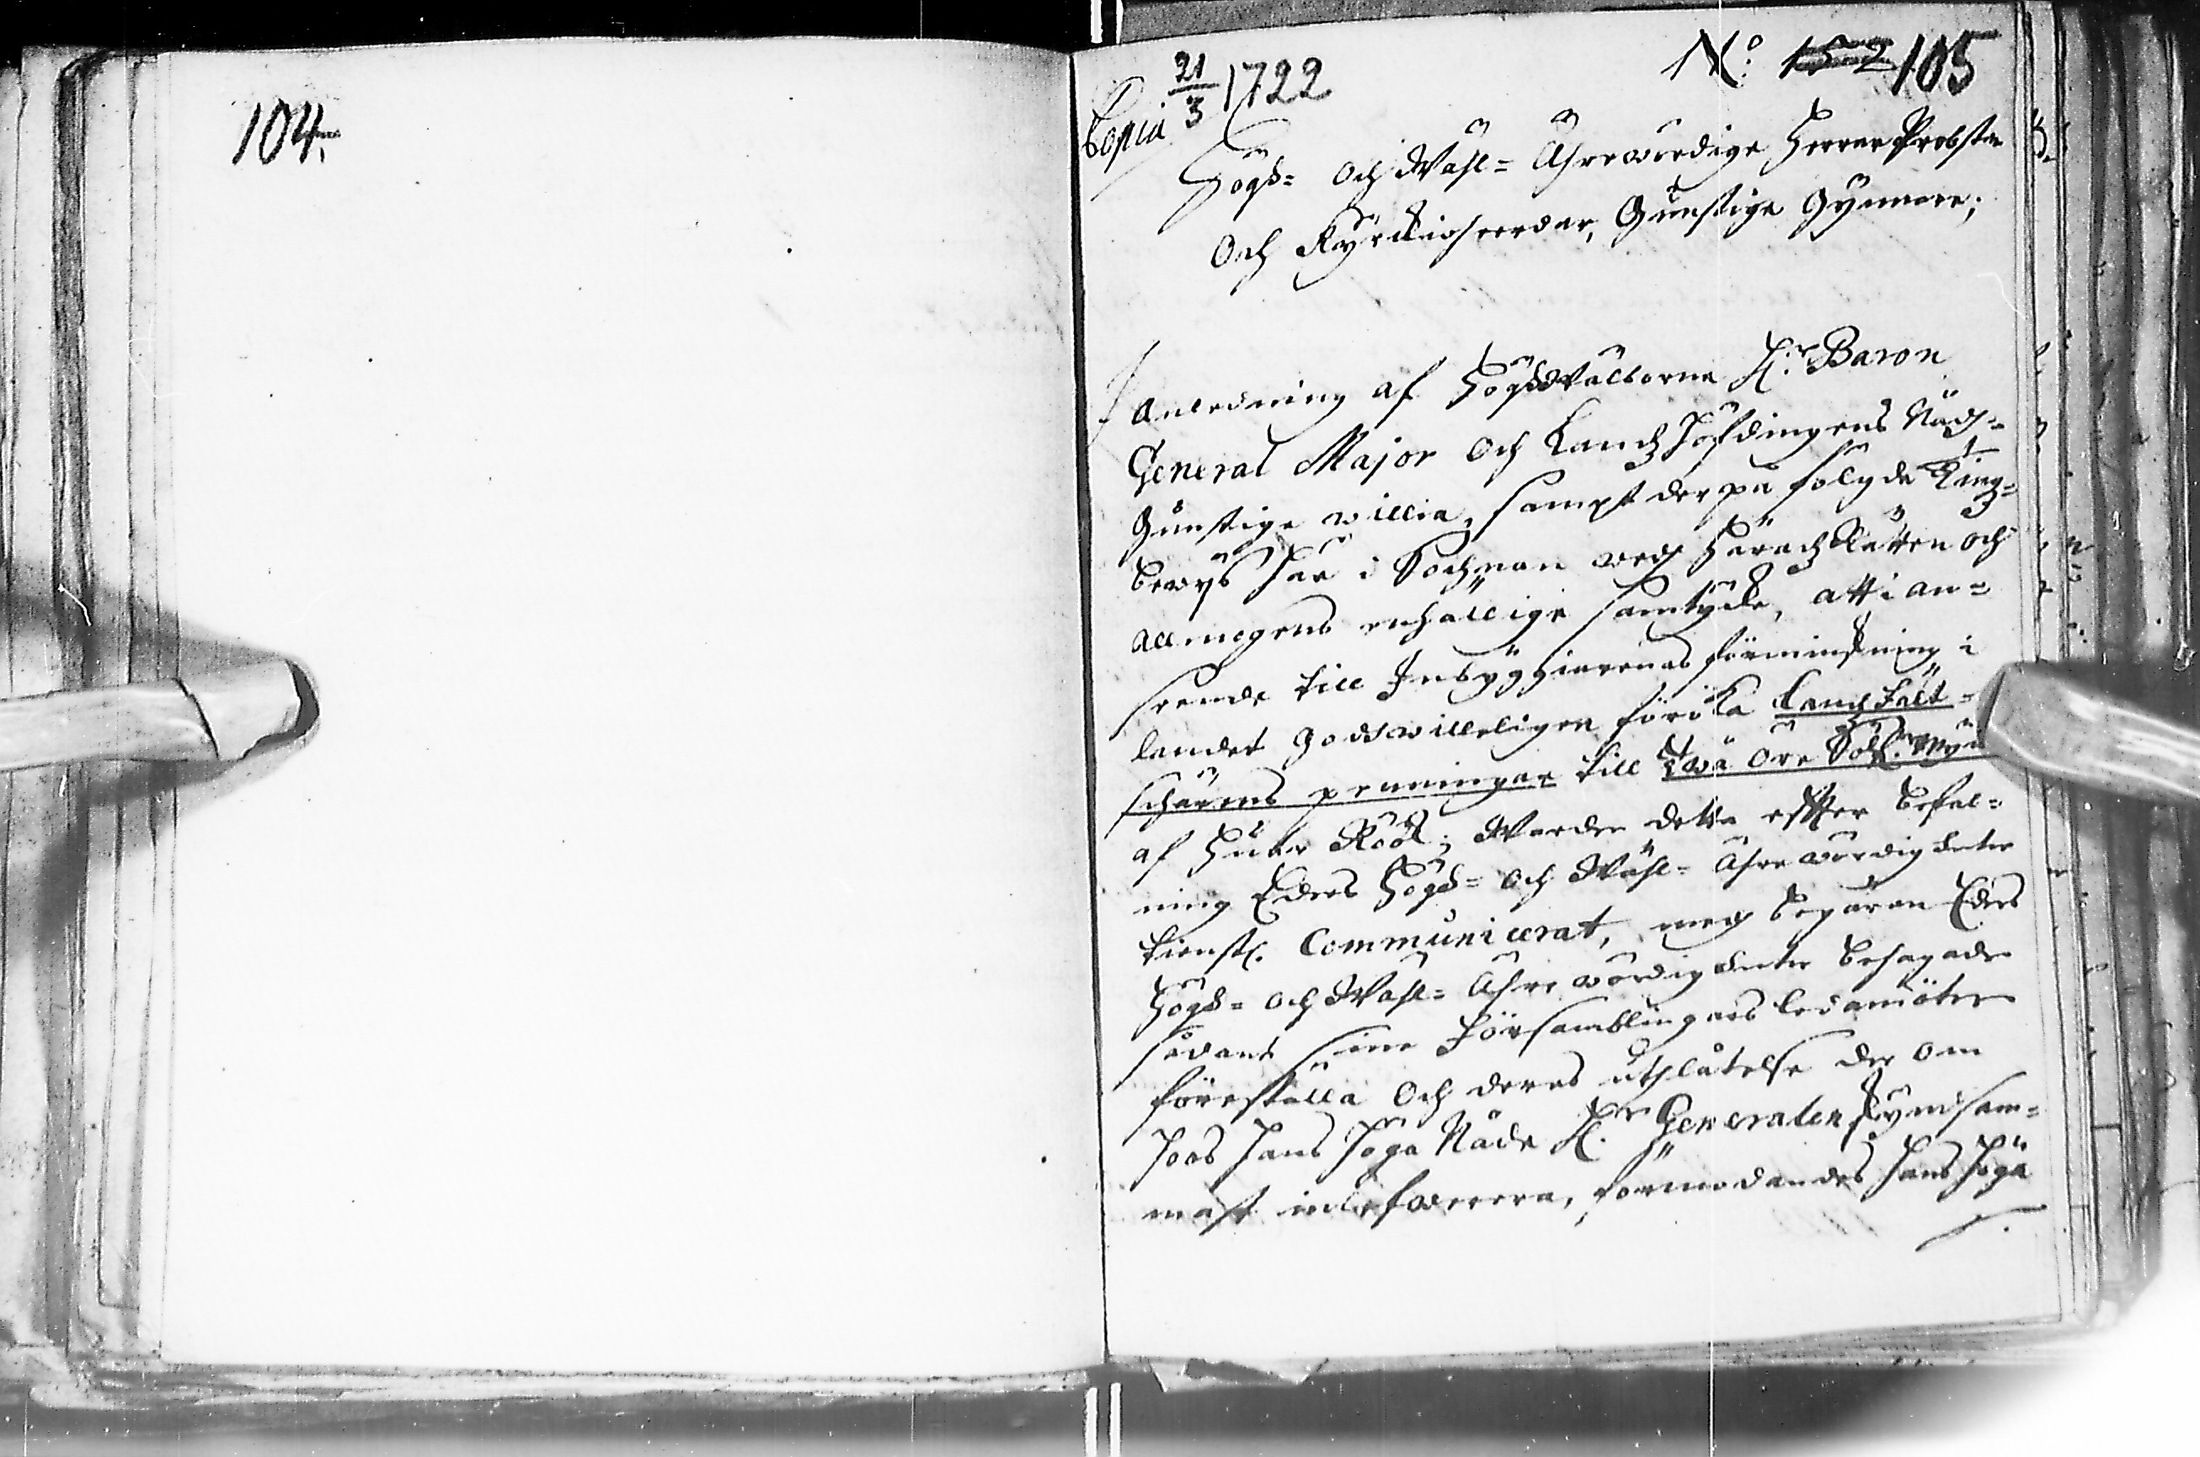 104.
21/3 1722
No: 152 105
Copia
Högd= och Wähl= Ährewördige Herrar Probstar
Och Kyrckioherdar, Gunstige Gynnare;
I Anledning af Högwälborne H:r Baron
General Major och Landzhöfdingens Nåd=
Gunstige willia, sampt der på fölgde Ting=
bewys här i Sochnan wedh Häradz Rätten och
allmogens enhällige samtycke, att i an=
seende till Inbyggiarenas förminskning i
landet godwilleligen föröka landz fält=
schärens penningar till Twå öre Sölf. Myn
af huar Röök; Warder detta effter befal=
ning Eders Högd= och Wähl= Ährewördigheeter
tienstl. Communicerat, med begäran Eders
Högd= och Wähl= Ährewördigheeter behagade
sådant sine Församblingars ledamöter
föreställa och deras uthlåtelse der om
hoos hans höga Nåde H:r Generalen skyndsam=
mast inlefwerera, förmodandes hans höga